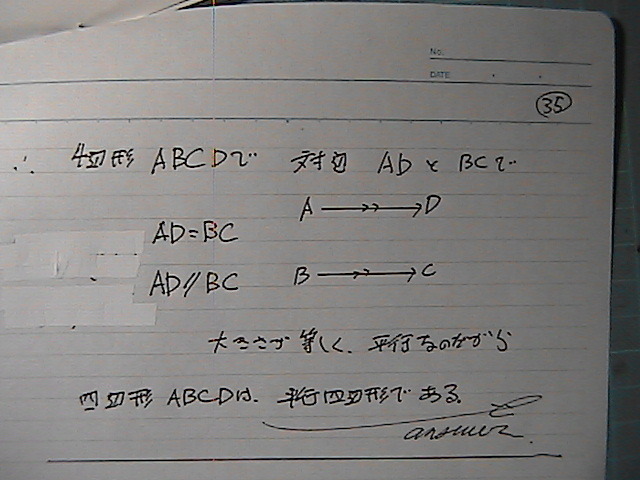 No.
DATE
35
∴ 4辺形 ABCDで 対辺 ADとBCで
A D
AD=BC
B C
AD//BC
大きさが等しく、平行なのだから
四辺形 ABCDは、平行四辺形である。
answer